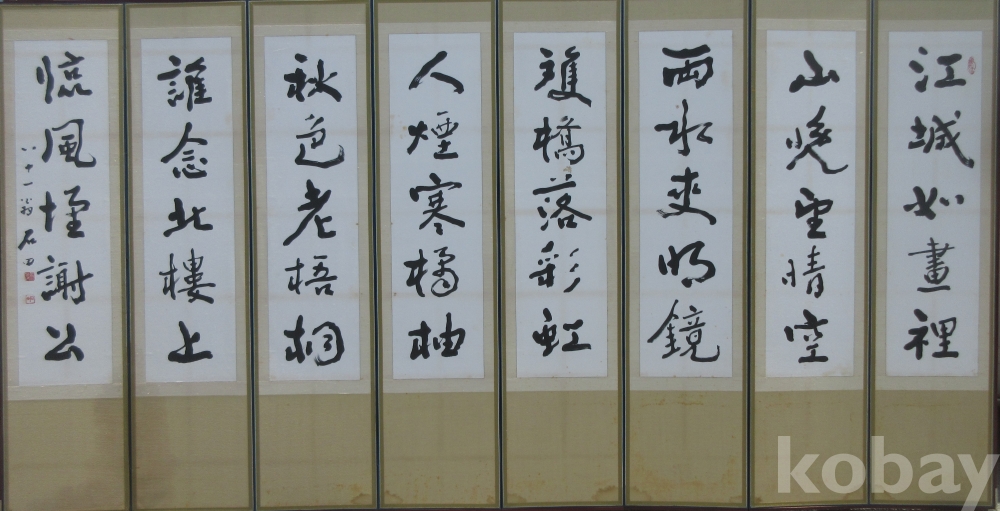 江城如畫裡
山曉望晴空
兩水夾明鏡
雙橋落彩虹
人煙寒橘柚
秋色老梧桐
誰念北樓上
臨風懷謝公
八十一翁 石田
kobay